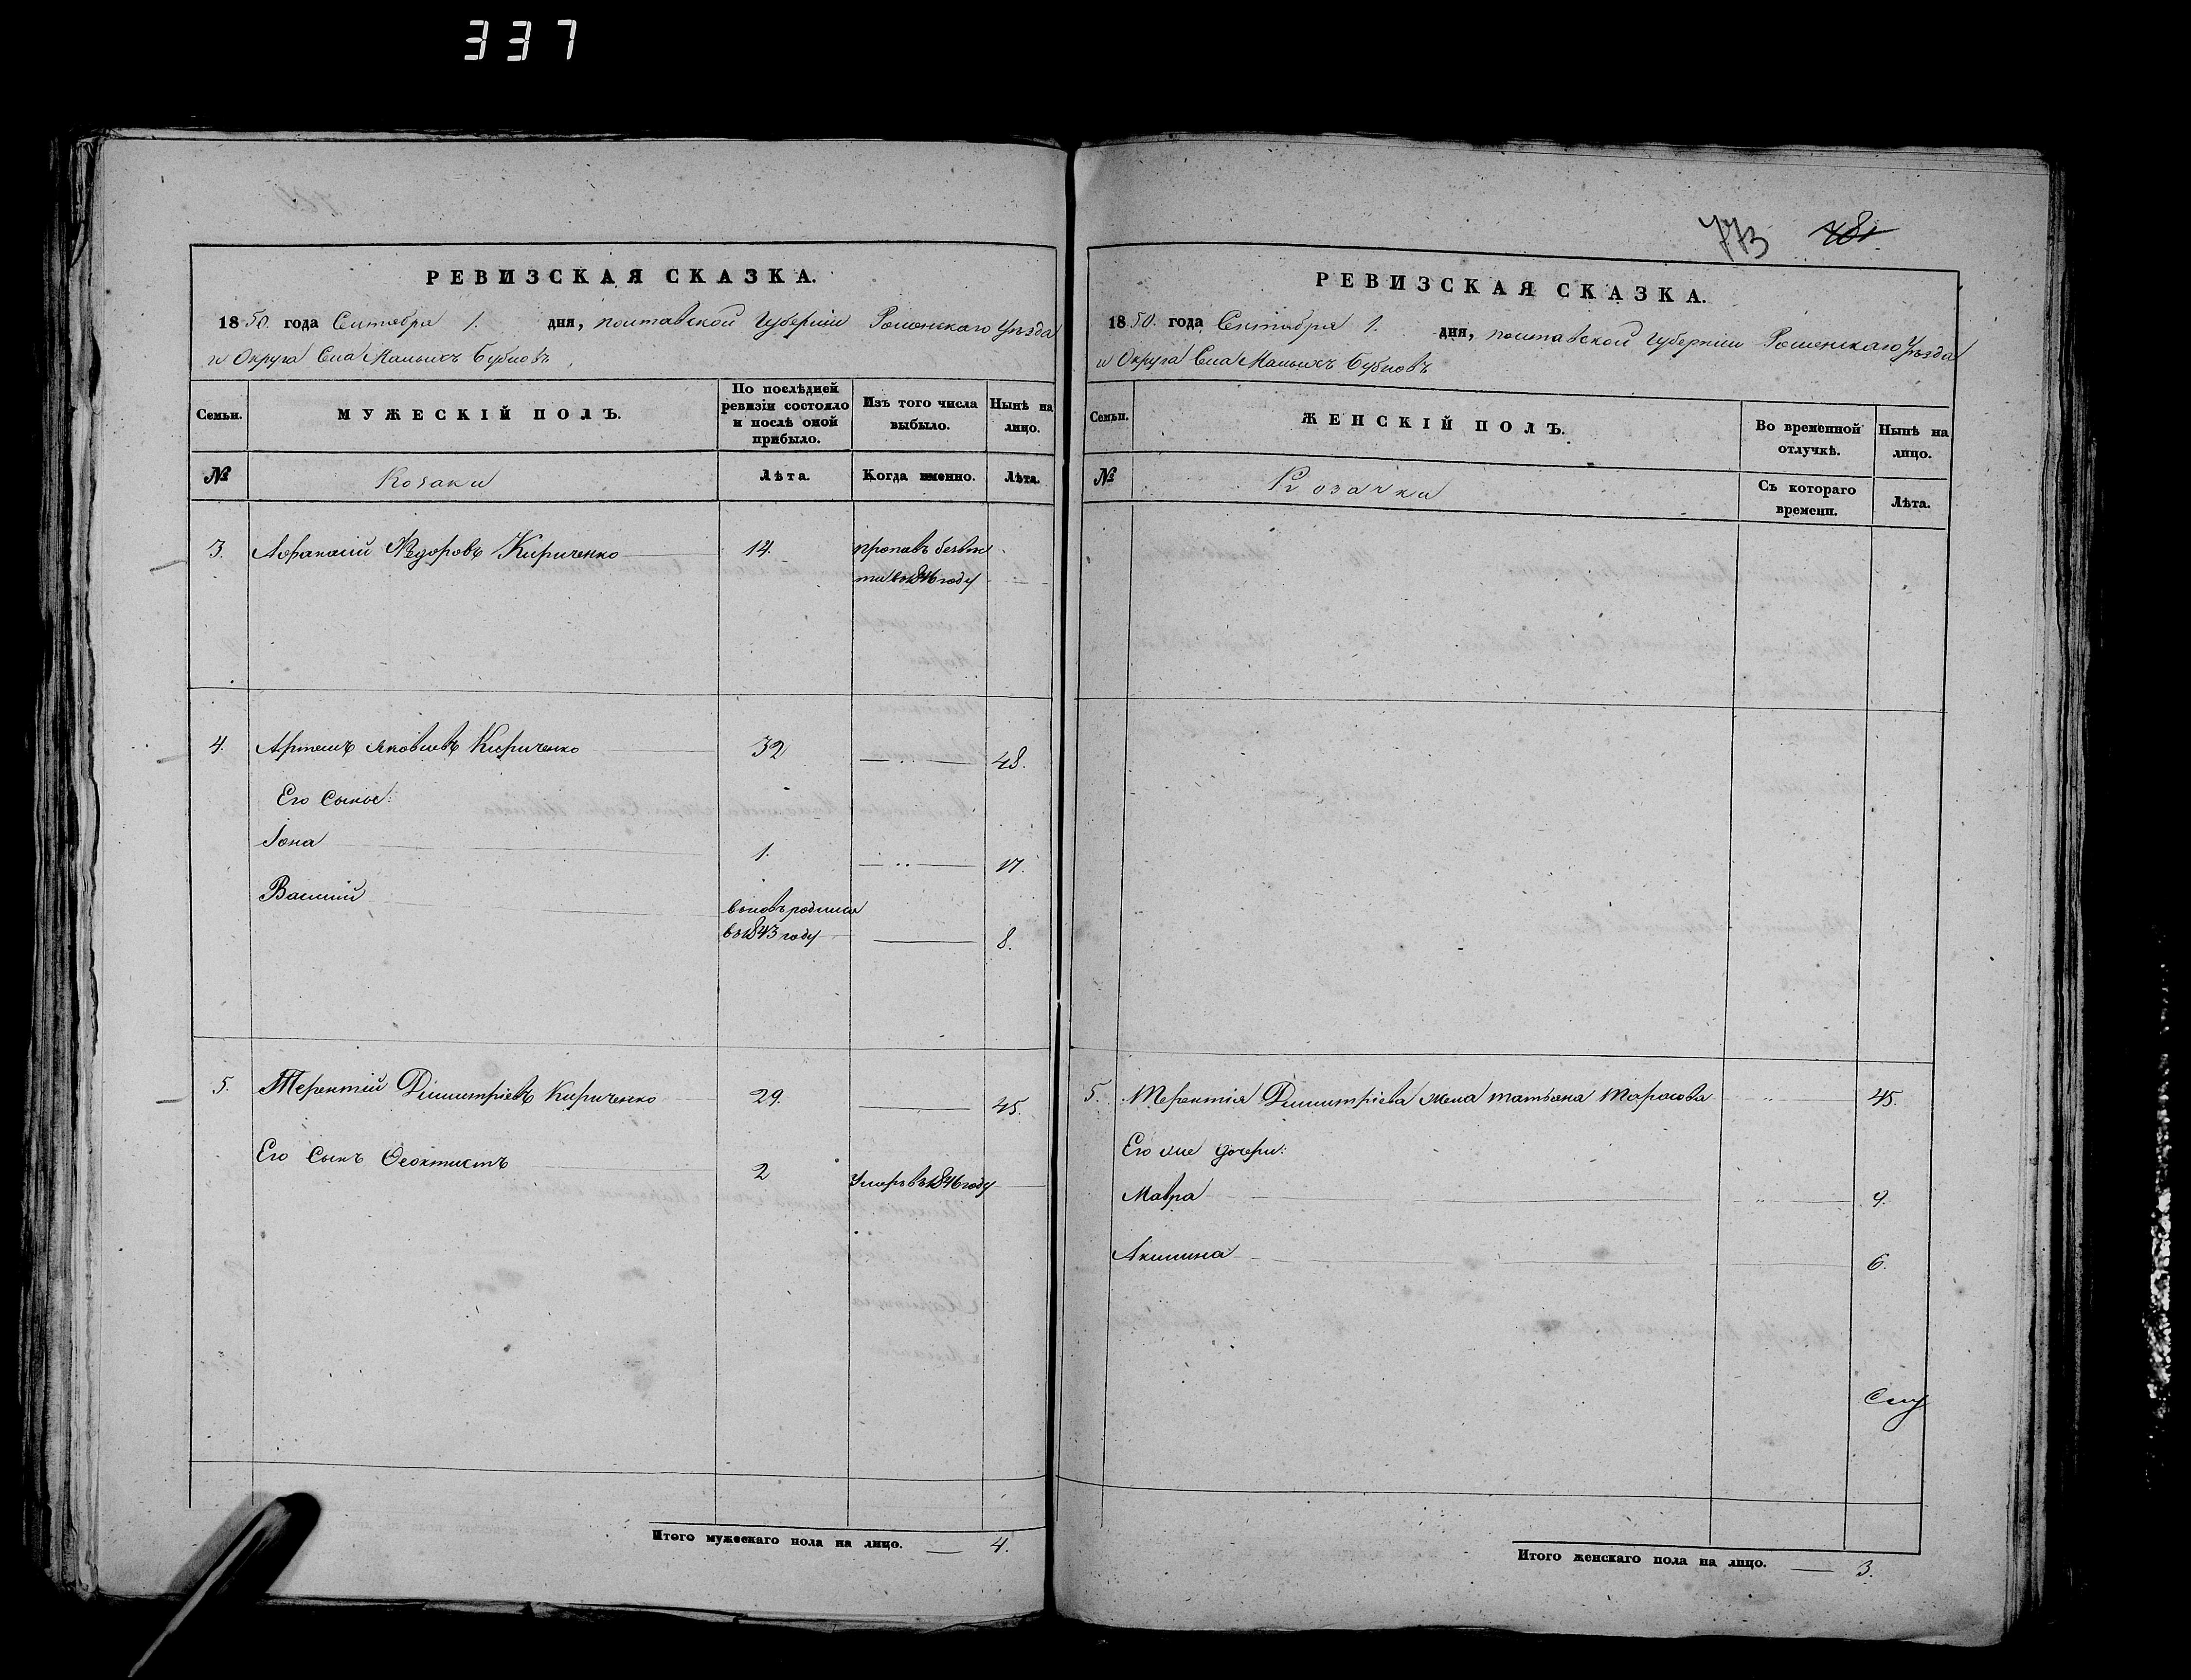 337
РЕВИЗСКАЯ СКАЗКА.
1850. года Сентября 1. дня, полтавской Губерніи Роменскаго Уѣзда
и Округа Села Малыхъ Бубновъ
Семьи.
МУЖЕСКІЙ ПОЛЪ.
По послѣдней ревизіи состояло и послѣ оной прибыло.
Изъ того числа выбыло.
Нынѣ на лицо.
№ Козаки Лѣта. Когда именно. Лѣта.
3. Афанасій Ѳедоровъ Кириченко 14. пропавъ безвѣс
ти въ 1846 году
4. Артемъ Яковлевъ Кириченко 32 48.
Его Сынъе:
Іона 1. 17.
Василій вновь родился
въ 1843 году 8.
5. Терентій Димитріевъ Кириченко 29. 45.
Его Сынъ Ѳеоктистъ 2 Умеръ въ 1846 году
Итого мужескаго пола на лицо. 4.
773 781
РЕВИЗСКАЯ СКАЗКА.
1850. года Сентября 1. дня, полтавской Губерніи Роменскаго Уѣзда
и Округа Села Малыхъ Бубновъ
Семьи.
ЖЕНСКІЙ ПОЛЪ.
Во временной отлучкѣ.
Нынѣ на лицо.
№ Козачки Съ котораго времени. Лѣта.
5. Терентія Димитріева жена татьяна Тарасова 45.
Его же дочери:
Мавра 9.
Акилина 6.
Итого женскаго пола на лицо. 3.